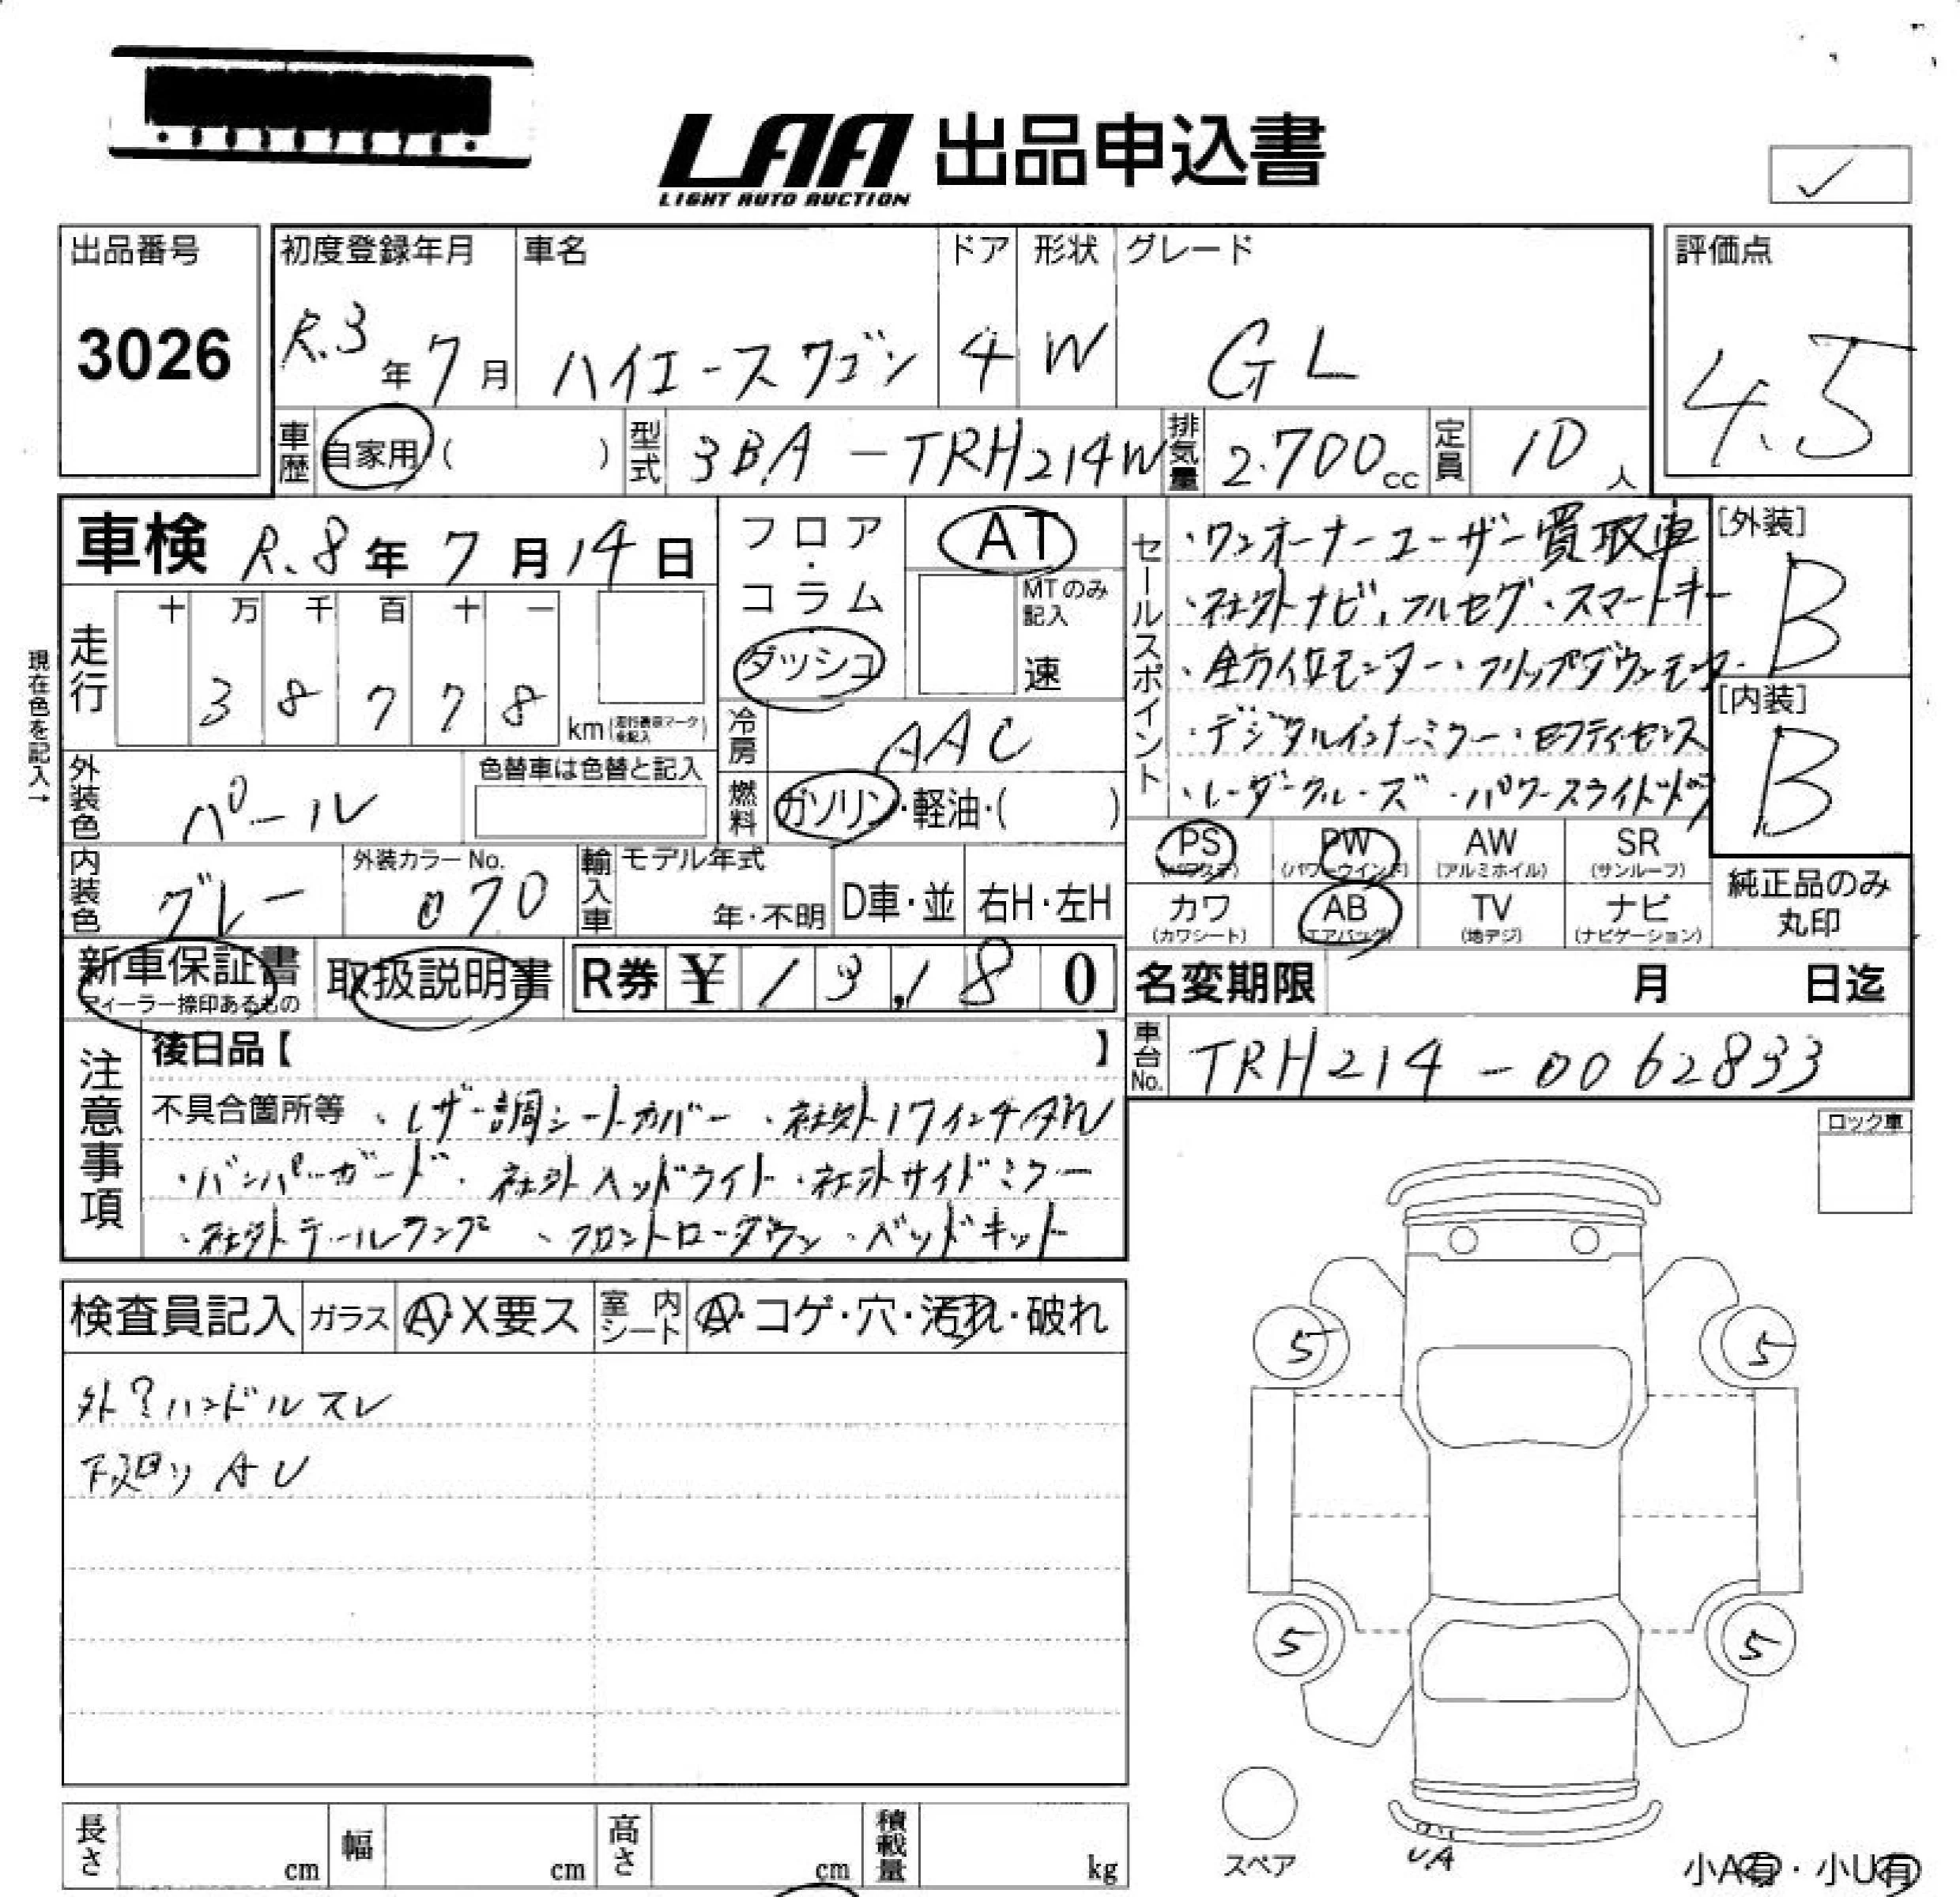 LAA 出品申込書
LIGHT AUTO AUCTION
出品番号
3026
初度登録年月
R.3年7月
車名
ハイエースワゴン
ドア
4
形状
W
グレード
GL
評価点
4.5
車歴 自家用 ( )
型式 3BA-TRH214W
排気量 2.700cc
定員 10人
車検 R.8年7月14日
フロア・コラム
ダッシュ
AT
MTのみ記入
速
現在色を記入→
走行
十 万 千 百 十 一
3 8 7 7 8
km(走行表示マーク未記入)
冷房 AAC
外装色 パール
色替車は色替と記入
燃料 ガソリン・軽油・( )
内装色 グレー
外装カラーNo.
070
輸入車
モデル年式
年・不明
D車・並
右H・左H
新車保証書
ディーラー捺印あるもの
取扱説明書
R券 ¥ 13,180
セールスポイント
・ワンオーナーユーザー買取車
・社外ナビ、フルセグ・スマートキー
・全方位モニター・フリップダウンモニター
・デジタルインナーミラー・セフティセンス
・レーダークルーズ・パワースライドドア
[外装]
B
[内装]
B
PS (パワステ)
PW (パワーウインド)
AW (アルミホイル)
SR (サンルーフ)
カワ (カワシート)
AB (エアバッグ)
TV (地デジ)
ナビ (ナビゲーション)
純正品のみ
丸印
名変期限 月 日迄
車台No. TRH214-0062833
注意事項
後日品【 】
不具合箇所等 ・レザー調シートカバー ・社外17インチAW
・バンパーガード・社外ヘッドライト・社外サイドミラー
・社外テールランプ・フロントローダウン・ベッドキット
ロック車
検査員記入
ガラス A・X要ス
室内シート A・コゲ・穴・汚れ・破れ
外?ハンドルスレ
下廻り AU
5
5
5
5
スペア
UA
小A有・小U有
長さ cm
幅 cm
高さ cm
積載量 kg